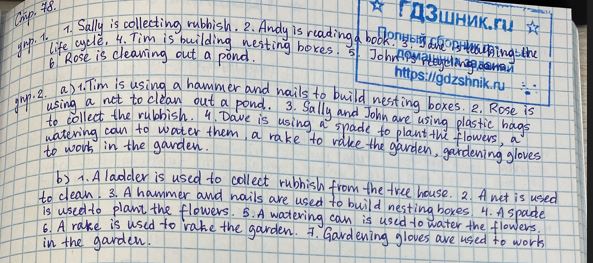 Стр. 78.
упр. 1. 1. Sally is collecting rubbish. 2. Andy is reading a book. 3. Dave is watching the
life cycle. 4. Tim is building nesting boxes. 5. John is recycling
6. Rose is cleaning out a pond.
упр. 2. a) 1. Tim is using a hammer and nails to build nesting boxes. 2. Rose is
using a net to clean out a pond. 3. Sally and John are using plastic bags
to collect the rubbish. 4. Dave is using a spade to plant the flowers, a
watering can to water them, a rake to rake the garden, gardening gloves
to work in the garden.
b) 1. A ladder is used to collect rubbish from the tree house. 2. A net is used
to clean. 3. A hammer and nails are used to build nesting boxes. 4. A spade
is used to plant the flowers. 5. A watering can is used to water the flowers.
6. A rake is used to rake the garden. 7. Gardening gloves are used to work
in the garden.
ГДЗшник.ru
Полный сборник
домашних заданий
https://gdzshnik.ru